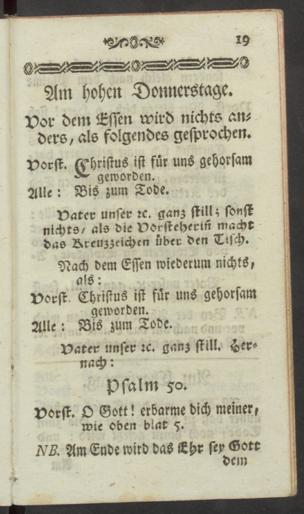 19
Am hohen Donnerstage.
Vor dem Essen wird nichts an-
ders, als folgendes gesprochen.
Vorst. Christus ist für uns gehorsam
geworden.
Alle: Bis zum Tode.
Vater unser ꝛc. ganz still; sonst
nichts, als die Vorsteherin̄ macht
das Kreuzzeichen über den Tisch.
Nach dem Essen wiederum nichts,
als:
Vorst. Christus ist für uns gehorsam
geworden.
Alle: Bis zum Tode.
Vater unser ꝛc. ganz still. Her-
nach:
Psalm 50.
Vorst. O Gott! erbarme dich meiner,
wie oben blat 5.
NB. Am Ende wird das Ehr sey Gott
dem